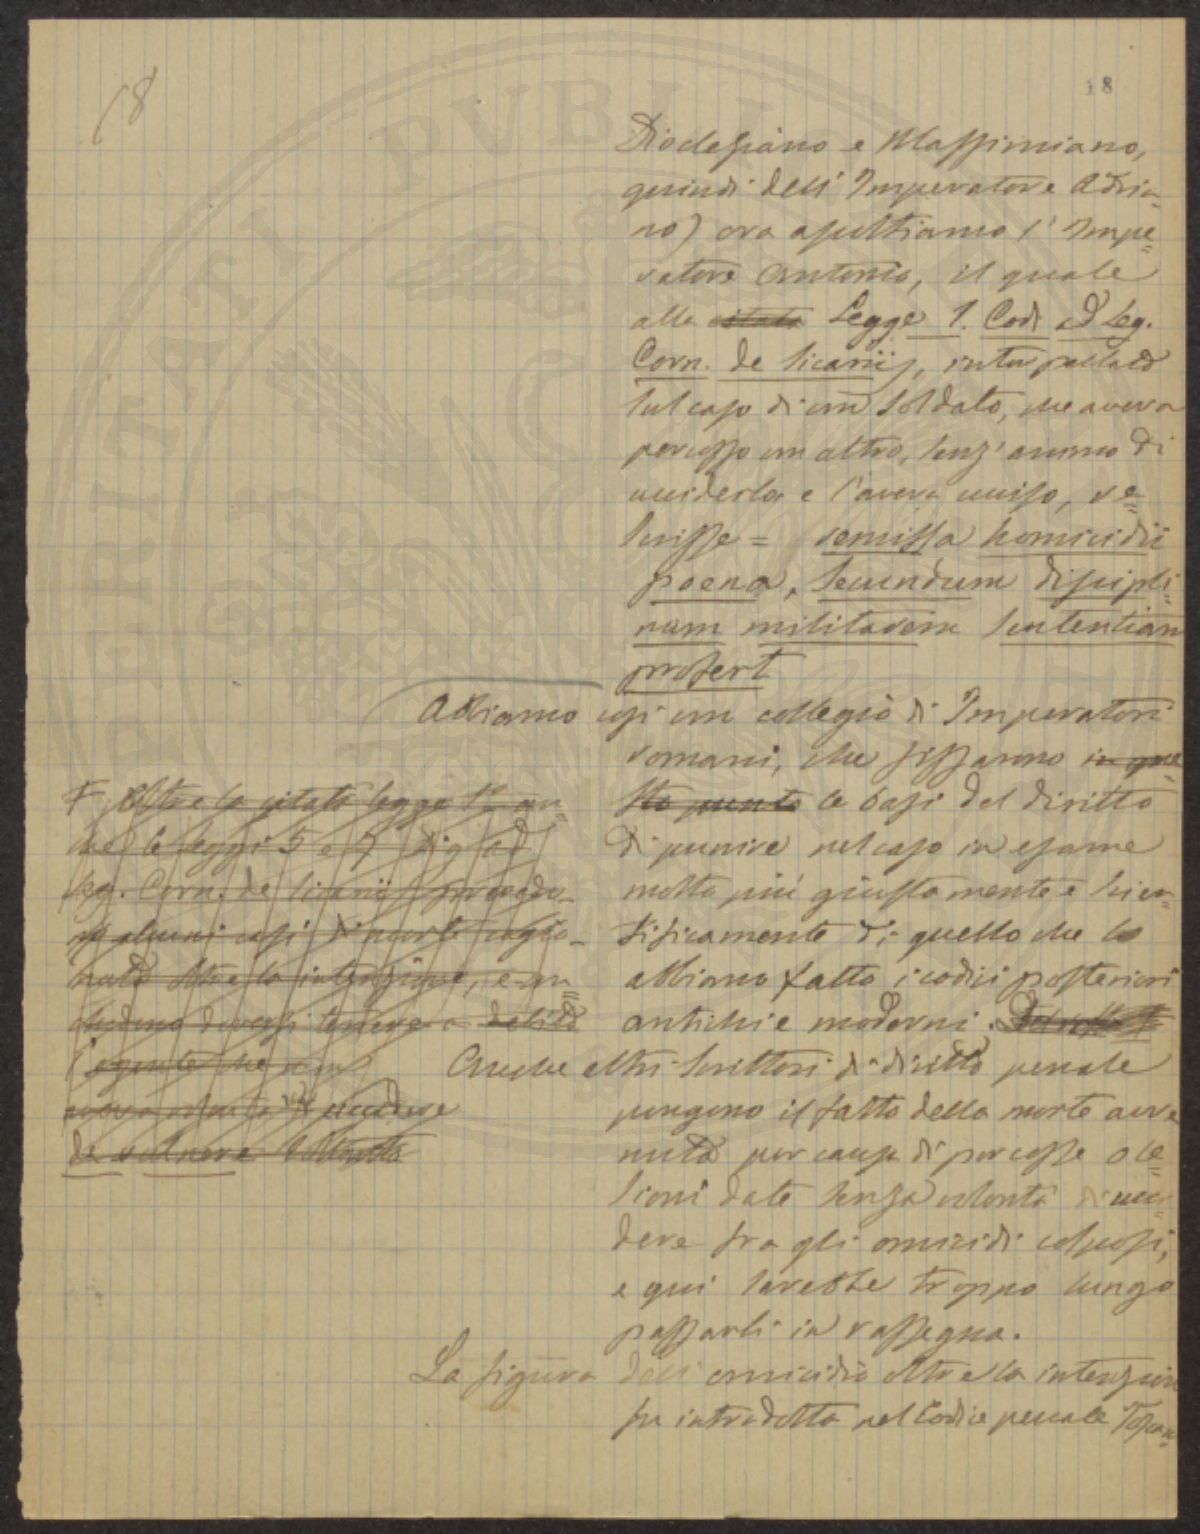 18
18
Dioclesiano e Massimiano,
quindi dell'Imperatore Adria=
no) ora ascoltiamo l'Impe=
ratore Antonio, il quale
alla citata Legge 1. Cod. ad Leg.
Corn. de Sicariis, interpellato
sul caso di un soldato, che aveva
percosso un altro, senz'animo di
ucciderlo e l'aveva ucciso, re=
scrisse = remissa homicidii
poena, secundum discipli=
nam militarem sententiam
profert
Abbiamo così un collegio di Imperatori
romani, che fissarono in que=
sto punto le basi del diritto
di punire nel caso in esame
molto più giustamente e scien=
tificamente di quello che lo
abbiano fatto i codici posteriori
antichi e moderni.
Anche altri scrittori di diritto penale
pongono il fatto della morte avve
nuta per causa di percosse o le=
sioni date senza volontà di ucci=
dere fra gli omicidi colposi,
e qui sarebbe troppo lungo
passarli in rassegna.
La figura dell'omicidio oltre la intenzione
fu introdotta nel Codice penale Toscan=
F Oltre la citata legge 1ª an=
che le leggi 5 e 7 Dig. ad
leg. Corn. de Sicariis prevedo=
no alcuni casi di morte cagio=
nata oltre la intenzione, e con=
cludono doversi tenere a debito
l'agente che non
aveva volontà di uccidere
de vulnere